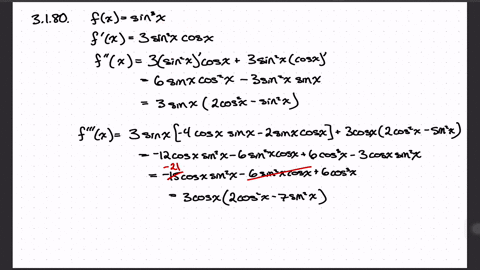 3.1.80. f(x)=sin³x
f'(x) = 3sin²x cosx
f''(x) = 3(sin²x)'cosx + 3sin²x(cosx)'
= 6 sinx cos²x - 3sin²x sinx
= 3 sinx (2cos²x - sin²x)
f'''(x) = 3 sinx[-4 cosx sinx - 2sinxcosx] + 3cosx(2cos²x - sin²x)
= -12cosx sin²x - 6 sin²x cosx + 6 cos³x - 3cosx sin²x
-21
= -15cosx sin²x - 6 sin²x cosx + 6cos³x
= 3cosx(2cos²x - 7sin²x)